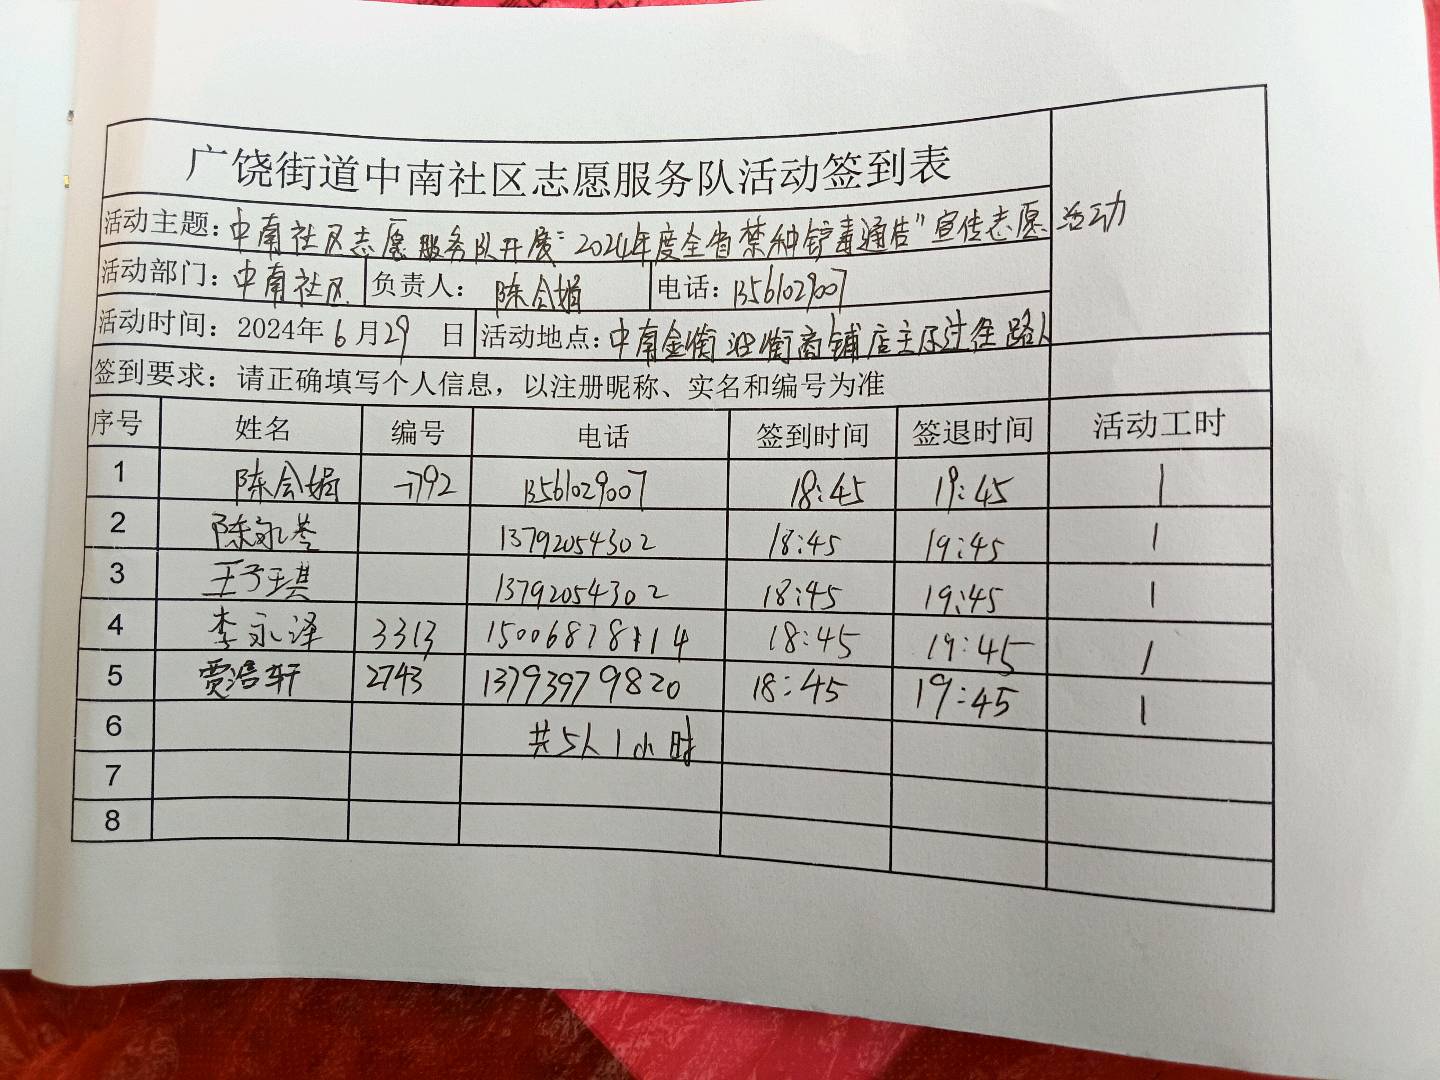 广饶街道中南社区志愿服务队活动签到表
活动主题：中南社区志愿服务队开展“2024年度全省禁种铲毒通告”宣传志愿活动
活动部门：中南社区 负责人： 陈会娟 电话：13561029007
活动时间：2024年6月29日 活动地点：中南金衡 衡商铺店主及过往路人
签到要求：请正确填写个人信息，以注册昵称、实名和编号为准
序号 姓名 编号 电话 签到时间 签退时间 活动工时
1 陈会娟 7792 13561029007 18:45 19:45 1
2 陈永 13792054302 18:45 19:45 1
3 王子琪 13792054302 18:45 19:45 1
4 李永泽 3313 15006878114 18:45 19:45 1
5 贾浩轩 2743 13793979820 18:45 19:45 1
6 共5人1小时
7
8